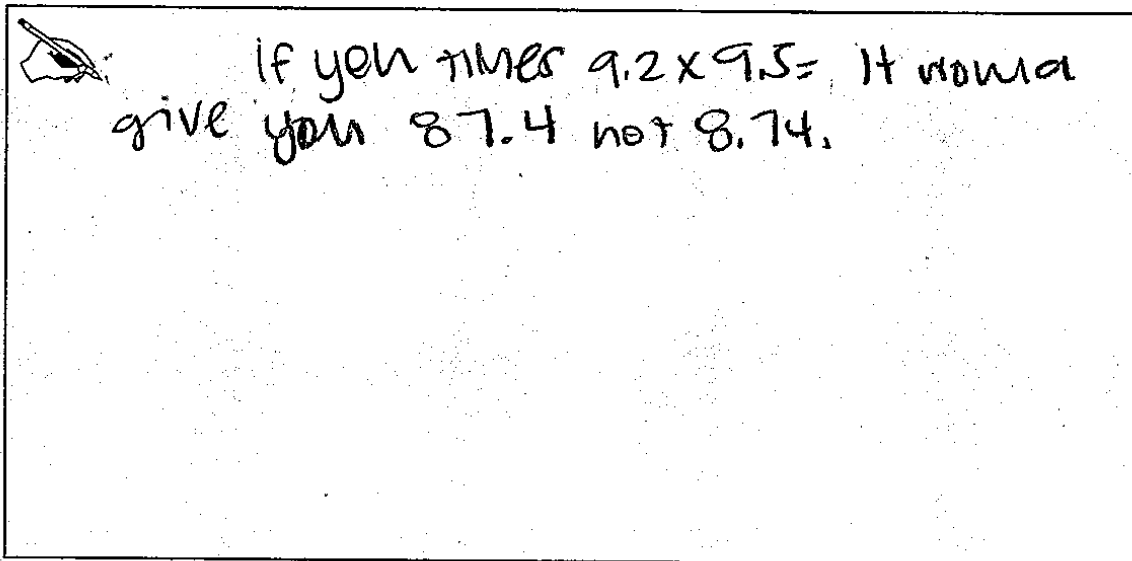 If you times 9.2 x 9.5= It would
give you 87.4 not 8.74.